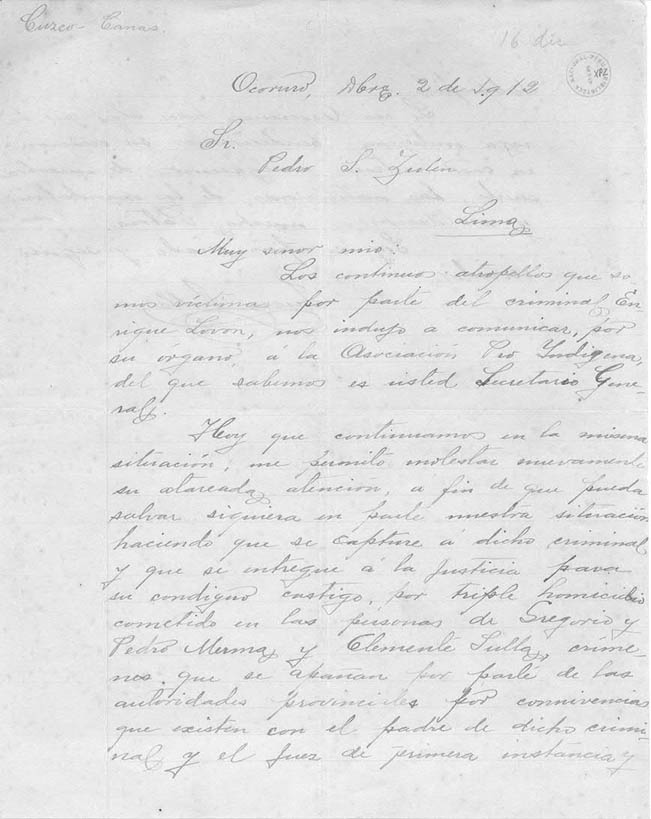 Cuzco - Canas.
16 dic
Ocoruro, Abre. 2 de 1912
Sr.
Pedro S. Zulen
Lima
Muy señor mio:
Los continuos atropellos que so
mos victima por parte del criminal En-
rique Lovon, nos indujo a comunicar, por
su órgano, á la Asociación Pro Indigena,
del que sabemos es usted Secretario Gene-
ral.
Hoy que continuamos en la misma
situación, me permito molestar nuevamente
su atareada atención, á fin de que pueda
salvar siquiera en parte nuestra situación
haciendo que se capture á dicho criminal
y que se entregue á la Justicia para
su condigno castigo, por triple homicidio
cometido en las personas de Gregorio y
Pedro Merma y Clemente Sulla, críme-
nes que se apañan por parte de las
autoridades provinciales por connivencias
que existen con el padre de dicho crimi-
nal y el Juez de primera instancia y